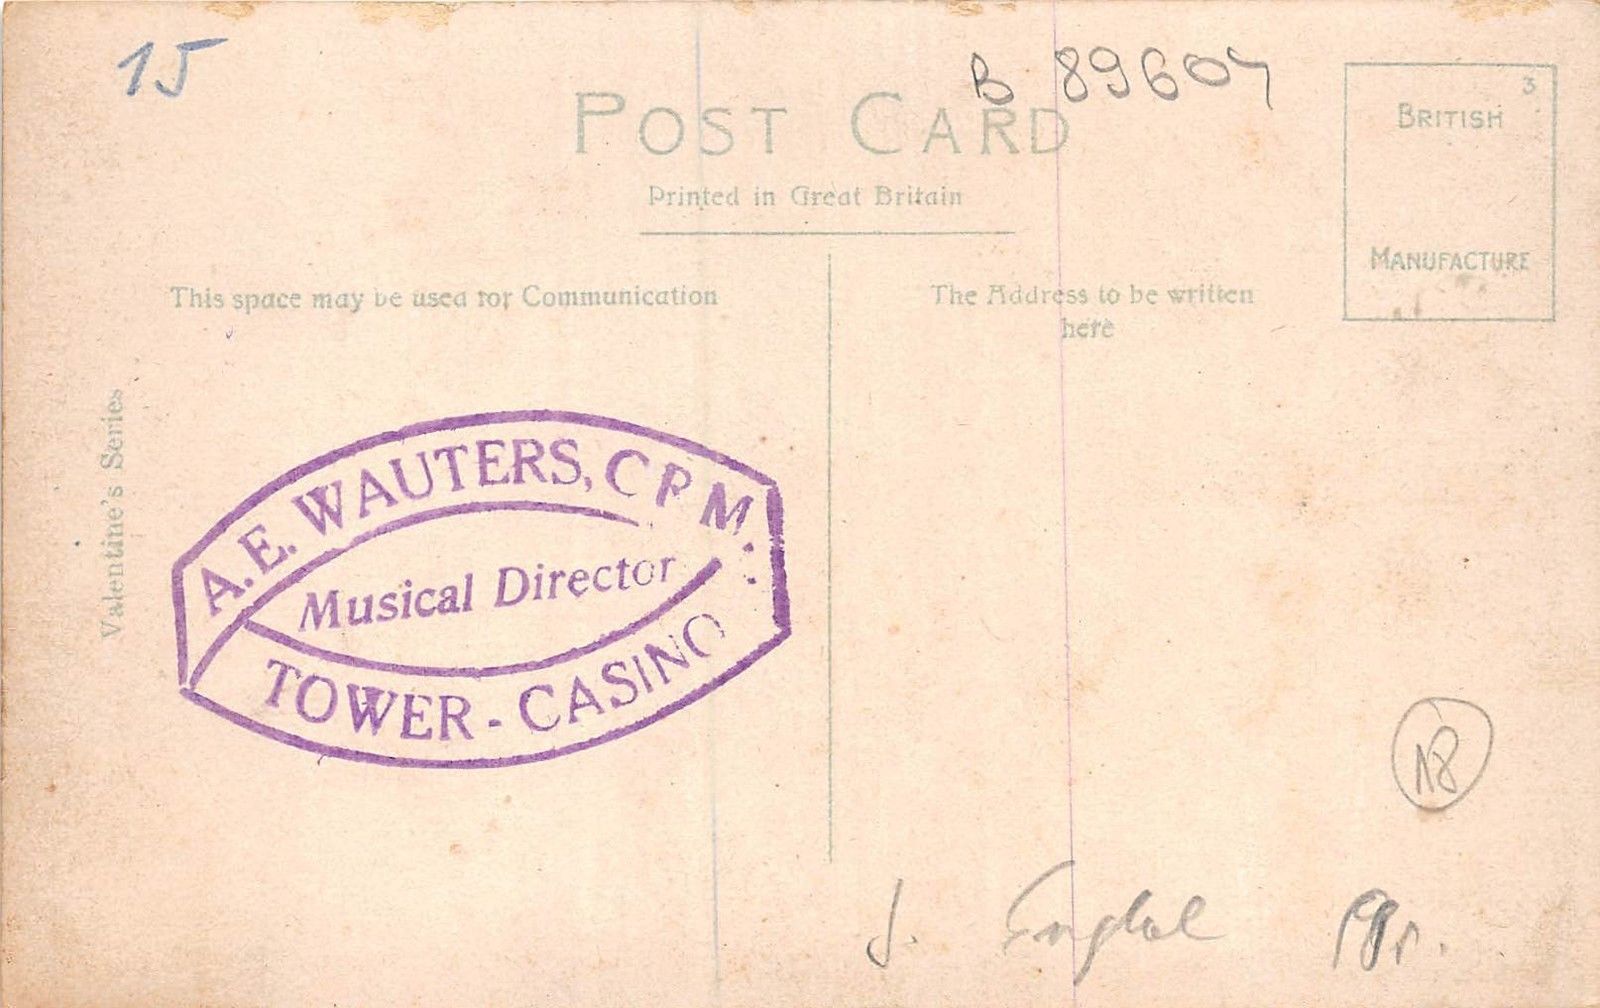 15
B 89604
POST CARD
Printed in Great Britain
3
BRITISH
MANUFACTURE
This space may be used for Communication
The Address to be written
here
Valentine's Series
A.E. WAUTERS, C P M.
Musical Director
TOWER - CASINO
18
J.